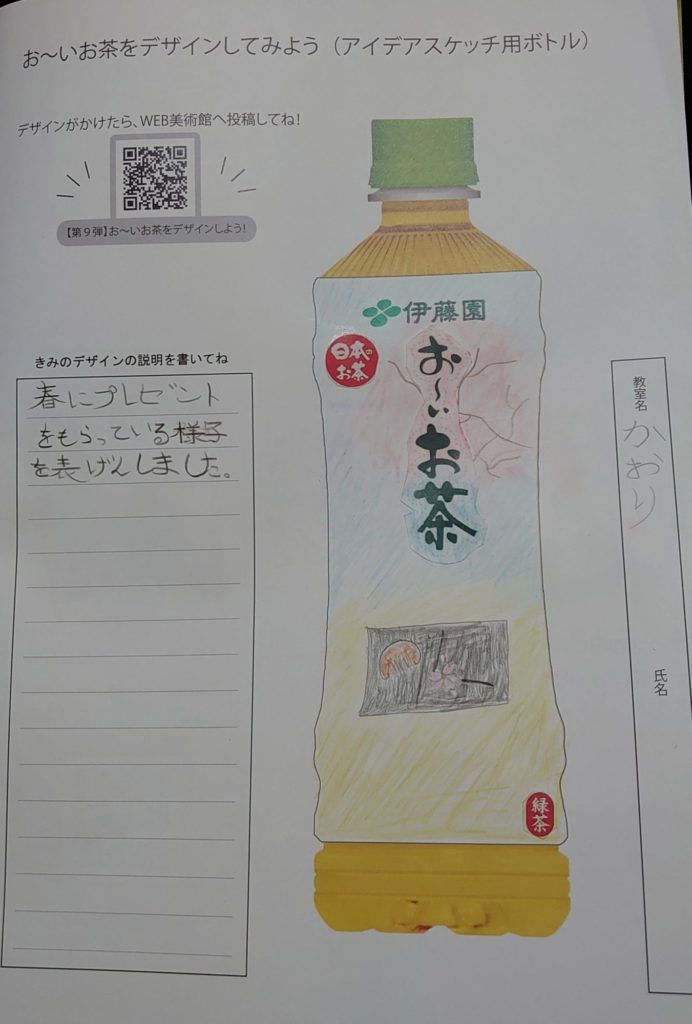 お〜いお茶をデザインしてみよう（アイデアスケッチ用ボトル）
デザインがかけたら、WEB美術館へ投稿してね！
【第９弾】お〜いお茶をデザインしよう！
きみのデザインの説明を書いてね
春にプレゼント
をもらっている様子
を表げんしました。
伊藤園
日本の
お茶
お〜いお茶
緑茶
教室名
かおり
氏名